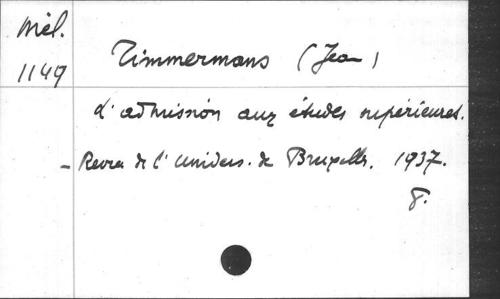 Mél.
1149
Timmermans (Jean)
L'admission aux études supérieures.
- Revue de l'Univers. de Bruxelles. 1937.
8.